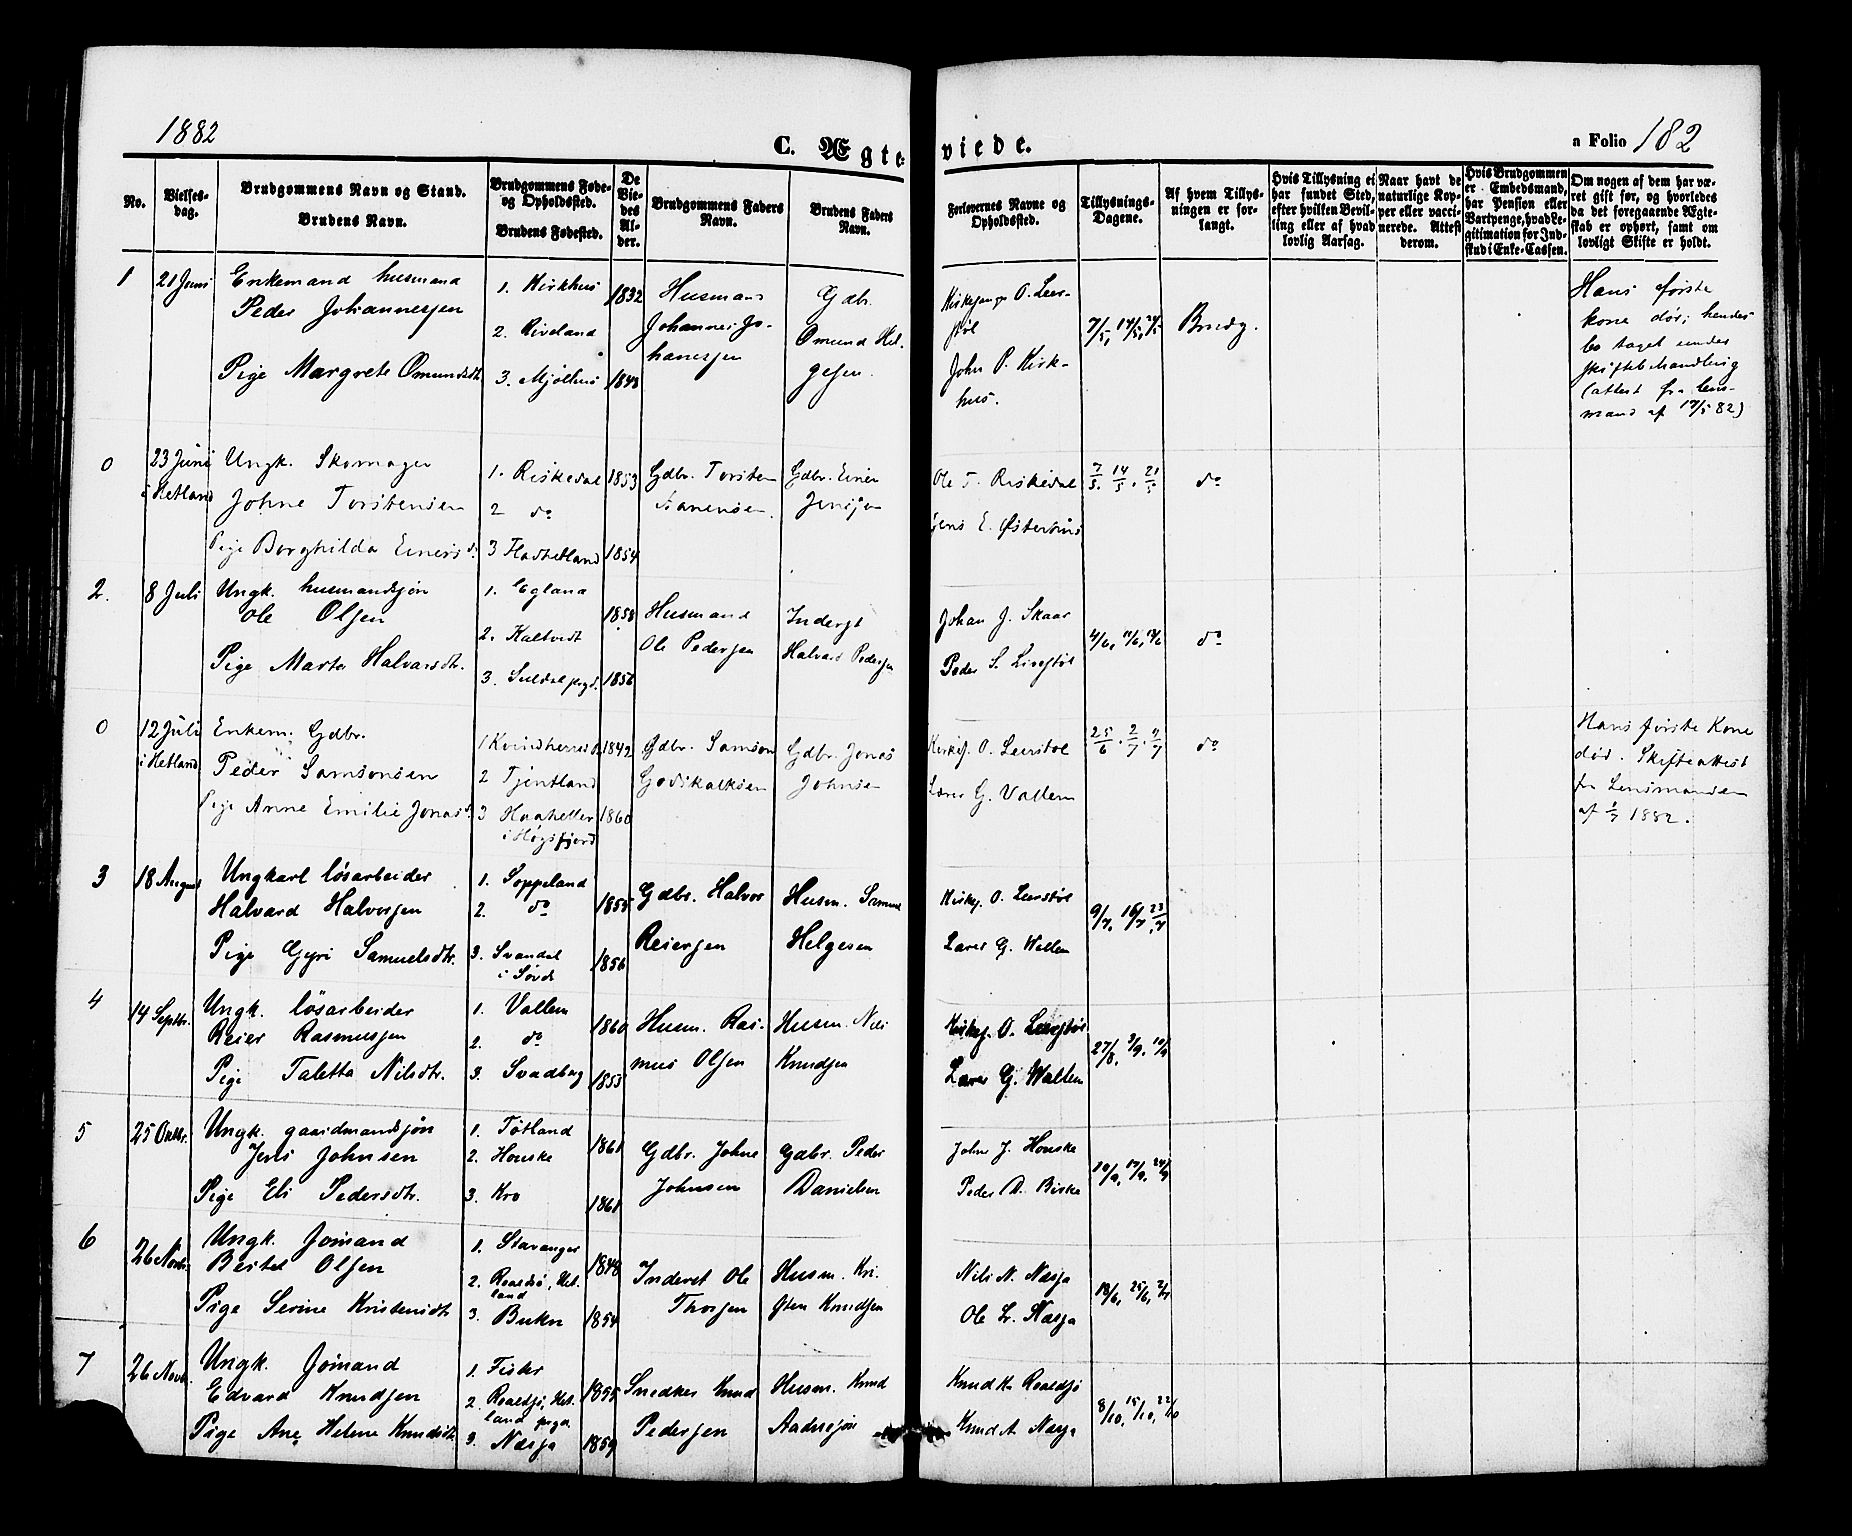 1882
C. Ægte-
viede.
a Folio 182
No.
Vielses-
dag.
Brudgommens Navn og Stand.
Brudens Navn.
Brudgommens Føde-
og Opholdssted.
Brudens Fødested.
De
Vie-
des
Al-
der.
Brudgommens Faders
Navn.
Brudens Faders
Navn.
Forlovernes Navne og
Opholdssted.
Tillysnings-
Dagene.
Af hvem Tillys-
ningen er for-
langt.
Hvis Tillysning ei
har fundet Sted,
efter hvilken Bevil-
ling eller af hvad
lovlig Aarsag.
Naar havt de
naturlige Kop-
per eller vacci-
nerede. Attest
derom.
Hvis Brudgommen
er Embedsmand,
har Pension eller
Vartpenge, hvad Le-
gitimation for Ind-
skud i Enke-Cassen.
Om nogen af dem har væ-
ret gift før, og hvorledes
da det foregaaende Ægte-
skab er ophørt, samt om
lovligt Skifte er holdt.
1
21 Juni
Enkemand husmand
Peder Johannesjen
Pige Margrete Omundsdt.
1. Kirkhus
2. Riveland
3. Mjølhus
1832
1848
Husmand
Johannes Jo-
hanesjen
Gdb.
Omund Hel-
gesen.
Kirkesanger O. Leer-
støl
John P. Kirk-
hus.
7/5, 14/5, 21/5
Brudg.
Hans første
kone død; hendes
bo taget under
skiftebehandling
(attest fra lens-
mand af 17/5 82)
0
23 Juni
i Hetland
Ungk. Skomager
Johne Torstensen
Pige Borghilda Einersd.
1. Riskedal
2 do
3 Fladhetland
1853
1854
Gdbr. Torsten
Gdbr. Einer
Jensjen
Ole T. Riskedal
Jens E. Østerhus
7/5. 14/5. 21/5
do
2.
8 Juli
Ungk. husmandsjøn
Ole Olsen
Pige Marta Halvarsdtr.
1. Egland
2. Kaltvedt
3. Suldal prgd.
1858
1856
Husmand
Ole Pedersen
Inderst
Halvard Pedersen
Johan J. Skaar
Peder S. Livestøl
4/6, 11/6, 18/6
do
0
12 Juli
i Hetland
Enkem. Gdbr.
Peder Samsonsen
Pige Anne Emilie Jonasd.
1 Kvindherred
2 Tjentland
3 Haaheller
i Høgsfjord
1842
1860
Gdbr. Samson
Godskalksen
Gdbr. Jonas
Johnsen
Kirkes. O. Leerstøl
Lars G. Vallem
25/6. 2/7. 9/7
do
Hans første Kone
død. Skifteattest
fra Lensmanden
af 1/7 1882.
3
18 August
Ungkarl løsarbeider
Halvard Halvorsen
Pige Gyri Samuelsdtr.
1. Soppeland
2. do
3. Svandal
i Søvde
1855
1856
Gdbr. Halvor
Reiersen
Husm. Samuel
Helgesen
Kirkes. O. Leerstøl
Lars G. Wallem
9/7, 16/7, 23/7
4
14 Septbr.
Ungk. løsarbeider
Reier Rasmussen
Pige Taletta Nilsdtr.
1. Vallem
2. do
3. Svadberg
1860
1855
Husm. Ras-
mus Olsen
Husm. Nils
Knudsen
Kirkes. O. Leerstøl
Lars G. Wallem
27/8, 3/9, 10/9
5
25 Oktbr.
Ungk. gaardmandsjøn
Jens Johnsen
Pige Eli Pedersdtr.
1. Tøtland
2. Houske
3. Kro
1861
1861
Gdbr. Johne
Johnsen
Gdbr. Peder
Danielsen
John J. Houske
Peder D. Birke
10/9, 17/9, 24/9
6
26 Novbr.
Ungk. Jømand
Bertel Olsen
Pige Serine Kristensdtr.
1. Stavanger
2. Roaldsø, Het-
land
3. Bukn
1848
1854
Inderst Ole
Thorsen
Husm. Kri-
sten Knudsen
Nils N. Næsja
Ole L. Næsja
18/6, 25/6, 2/7
7
26 Novbr.
Ungk. Jømand
Edvard Knudsen
Pige Ane Helene Knudsdtr.
1. Fisker
2. Roaldsø, Het-
land prgd.
3. Næsja
1855
1859
Snedker Knud
Pedersen
Husm. Knud
Knud K. Roaldsø
Knud A. Næsja
8/10, 15/10, 22/10